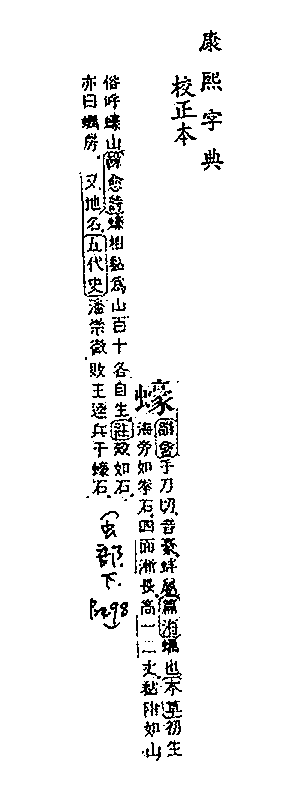 康熙字典
校正本
蠔
手刀切音豪蚌屬篇海蠣也本草初生
海旁如拳石四面漸長高一二丈黏附如山
俗呼蠔山韓愈詩蠔相黏爲山百十各自生註殼如石
亦曰蠣房 又地名五代史潘崇徹敗王逵兵于蠔石
(虫部.下. P.298)